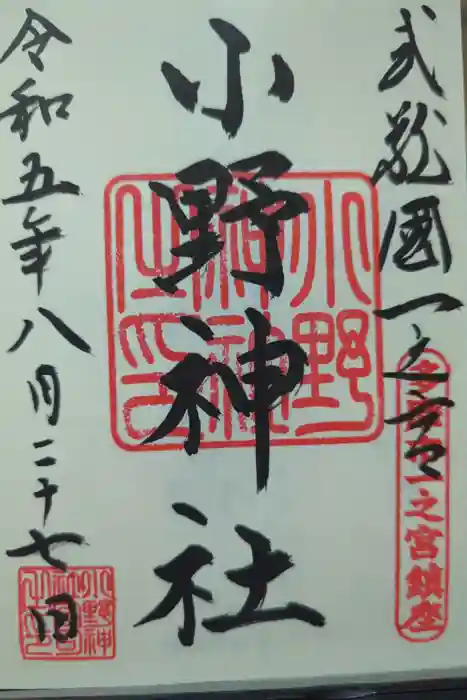 武蔵國一之宮
一之宮鎮座
小野神社
小野
神社
之印
令和五年八月二十七日